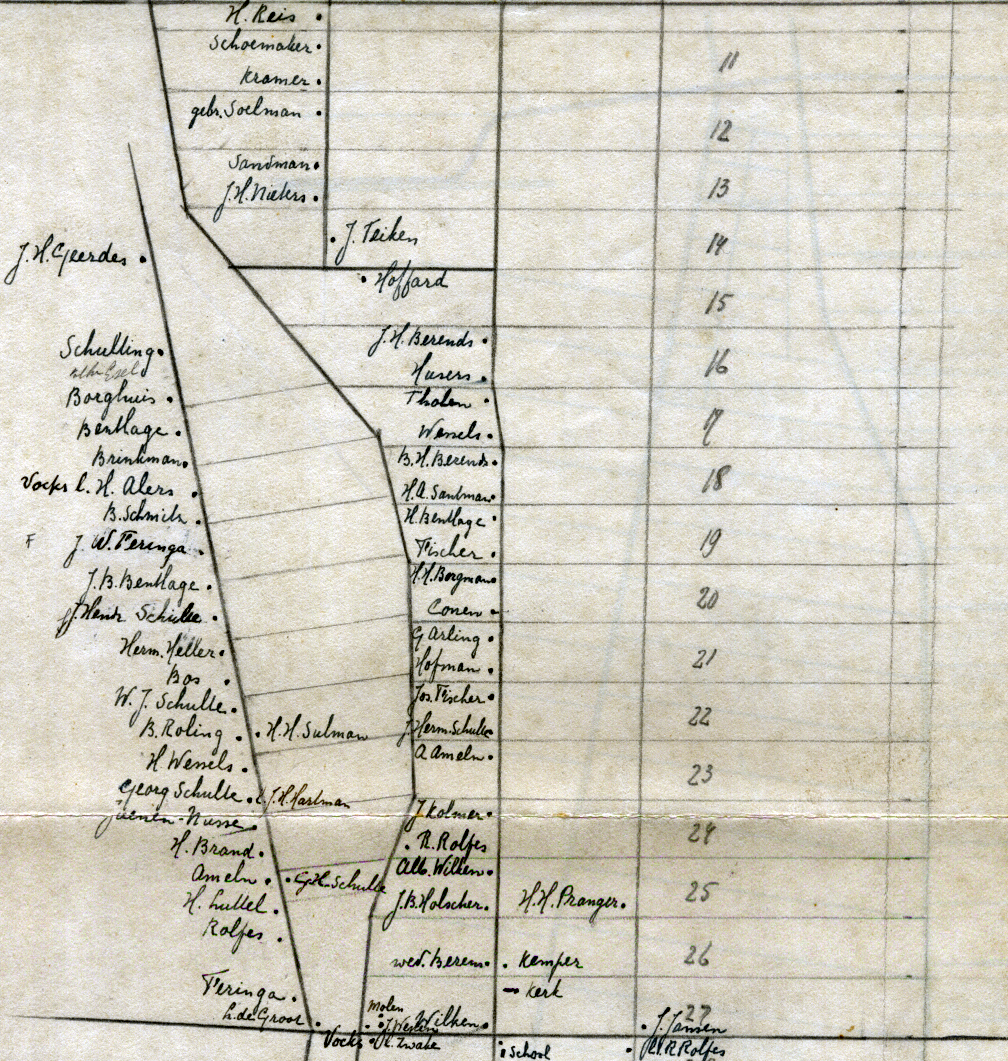 H. Reis
Schoemaker
11
Kramer
gebr. Soelman
12
Sandman
J.H. Nieters
13
J. Teiken
14
J.H. Geerdes
Hoffard
15
J.H. Berends
Schulling
16
Husers
Borghuis
Tholen
Benllage
Wessels
17
Brinkman
B.H. Berends
Vocks C. H. Alers
H.A. Santman
18
B. Schmitz
H. Benllage
F J. W. Feringa
Fischer
19
J.B. Benllage
H.H. Borgman
20
Hendr Schulte
Conen
G Arling
Herm. Heller
Hofman
21
Bos
W. J. Schulte
Jos. Fischer
B. Roling
H. H. Sulman
J. Herm. Schulte
22
H Wessels
A Ameln
23
Georg Schulte
J.H. Hartman
J Kolmer
24
H. Brand
R. Rolfes
Ameln
G.H. Schulte
Alb. Wilken
H. Luttel
J.B. Holscher
H.H. Pranger
25
Rolfes
wed. Berens
Kemper
26
Feringa
Kerk
L. de Groot
molen
Wilken
27
J. Jansen
Vocks
School
R Rolfes